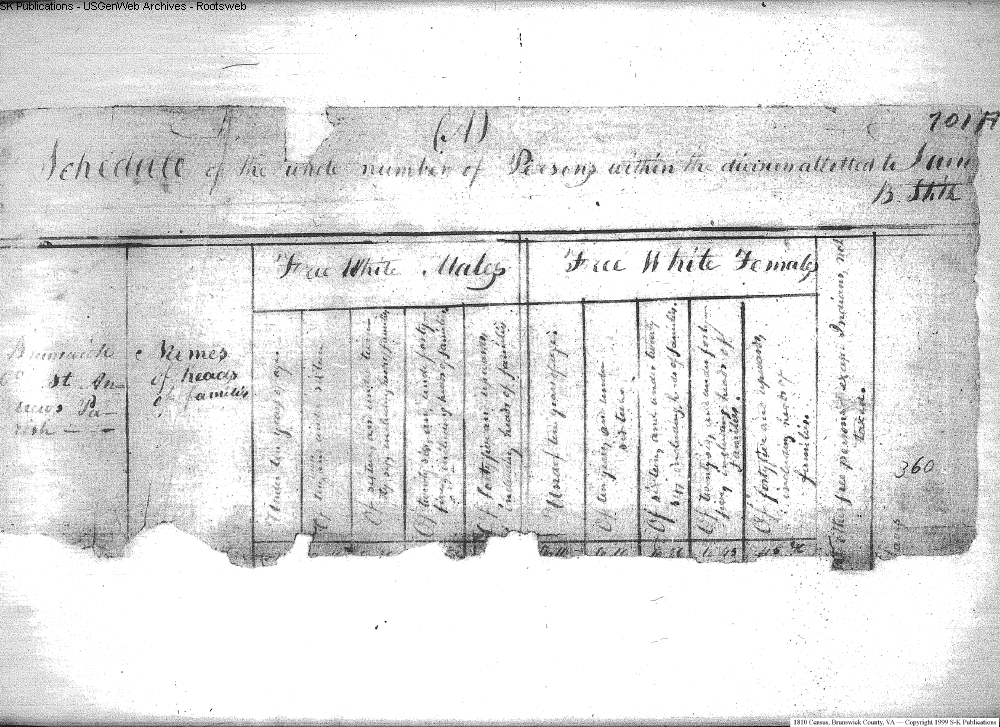 SK Publications - USGenWeb Archives - Rootsweb
701A
(A)
Schedule of the whole number of Persons within the division allotted to
B. Stith
Free White Males
Free White Females
Names
of heads
of families
St. An-
Pa-
rish
Under ten years of age
Of ten, and under sixteen
Of sixteen, and under twen-
ty six, including heads of families
Of twenty six, and under forty
five, including heads of families
Of forty five and upwards,
including heads of families
Under ten years of age
Of ten years, and under
sixteen
Of sixteen, and under twenty
six, including heads of families
Of twenty six, and under forty
five, including heads of
families.
Of forty five and upwards,
including heads of
families
All other free persons, except Indians, not
taxed.
360
1810 Census, Brunswick County, VA — Copyright 1999 S-K Publications